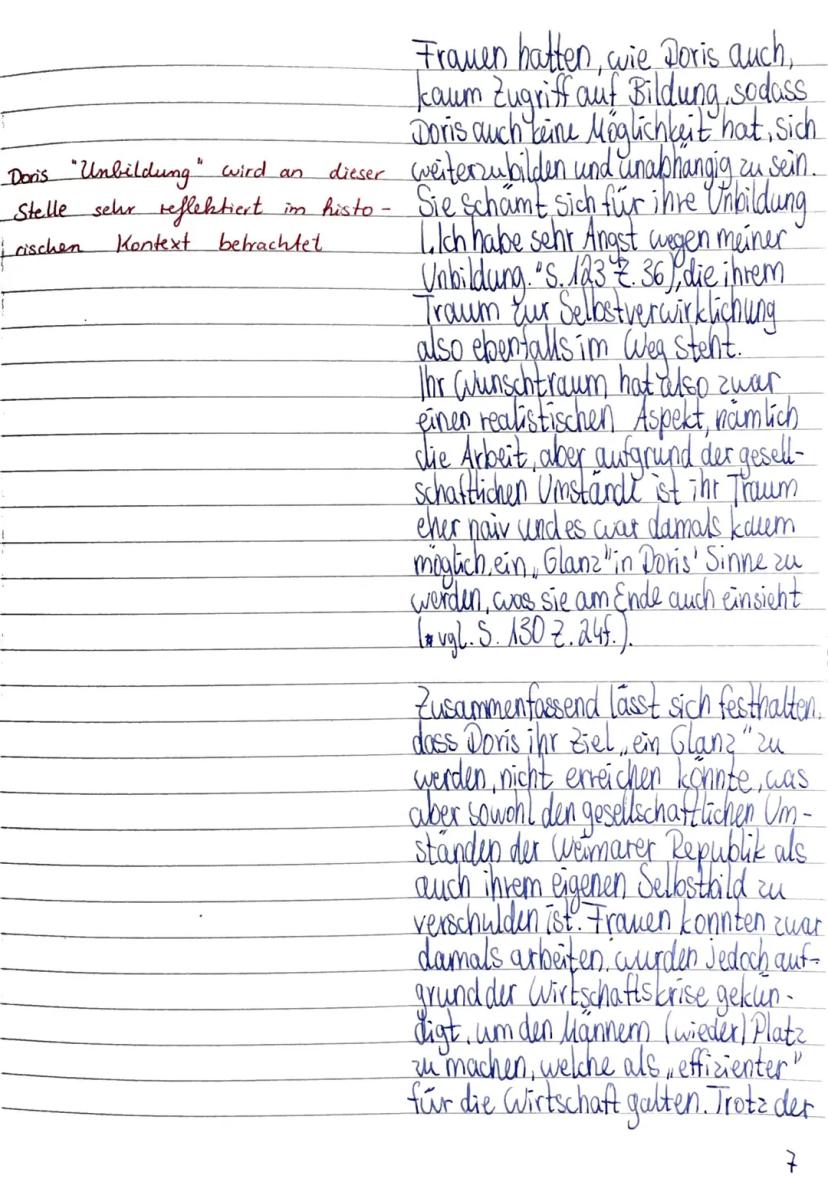 Doris "Unbildung" wird an dieser
Stelle sehr reflektiert im histo-
rischen Kontext betrachtet
Frauen hatten, wie Doris auch,
kaum Zugriff auf Bildung, sodass
Doris auch keine Möglichkeit hat, sich
weiterzubilden und unabhängig zu sein.
Sie schämt sich für ihre Unbildung
(„Ich habe sehr Angst wegen meiner
Unbildung." S. 123 Z. 36), die ihrem
Traum zur Selbstverwirklichung
also ebenfalls im Weg steht.
Ihr Wunschtraum hat also zwar
einen realistischen Aspekt, nämlich
die Arbeit, aber aufgrund der gesell-
schaftlichen Umstände ist ihr Traum
eher naiv und es war damals kaum
möglich, ein „Glanz" in Doris' Sinne zu
werden, was sie am Ende auch einsieht
(vgl. S. 130 Z. 24f.).
Zusammenfassend lässt sich festhalten,
dass Doris ihr Ziel, „ein Glanz" zu
werden, nicht erreichen könnte, was
aber sowohl den gesellschaftlichen Um-
ständen der Weimarer Republik als
auch ihrem eigenen Selbstbild zu
verschulden ist. Frauen konnten zwar
damals arbeiten, wurden jedoch auf-
grund der Wirtschaftskrise gekün-
digt, um den Männern (wieder) Platz
zu machen, welche als „effizienter"
für die Wirtschaft galten. Trotz der
7